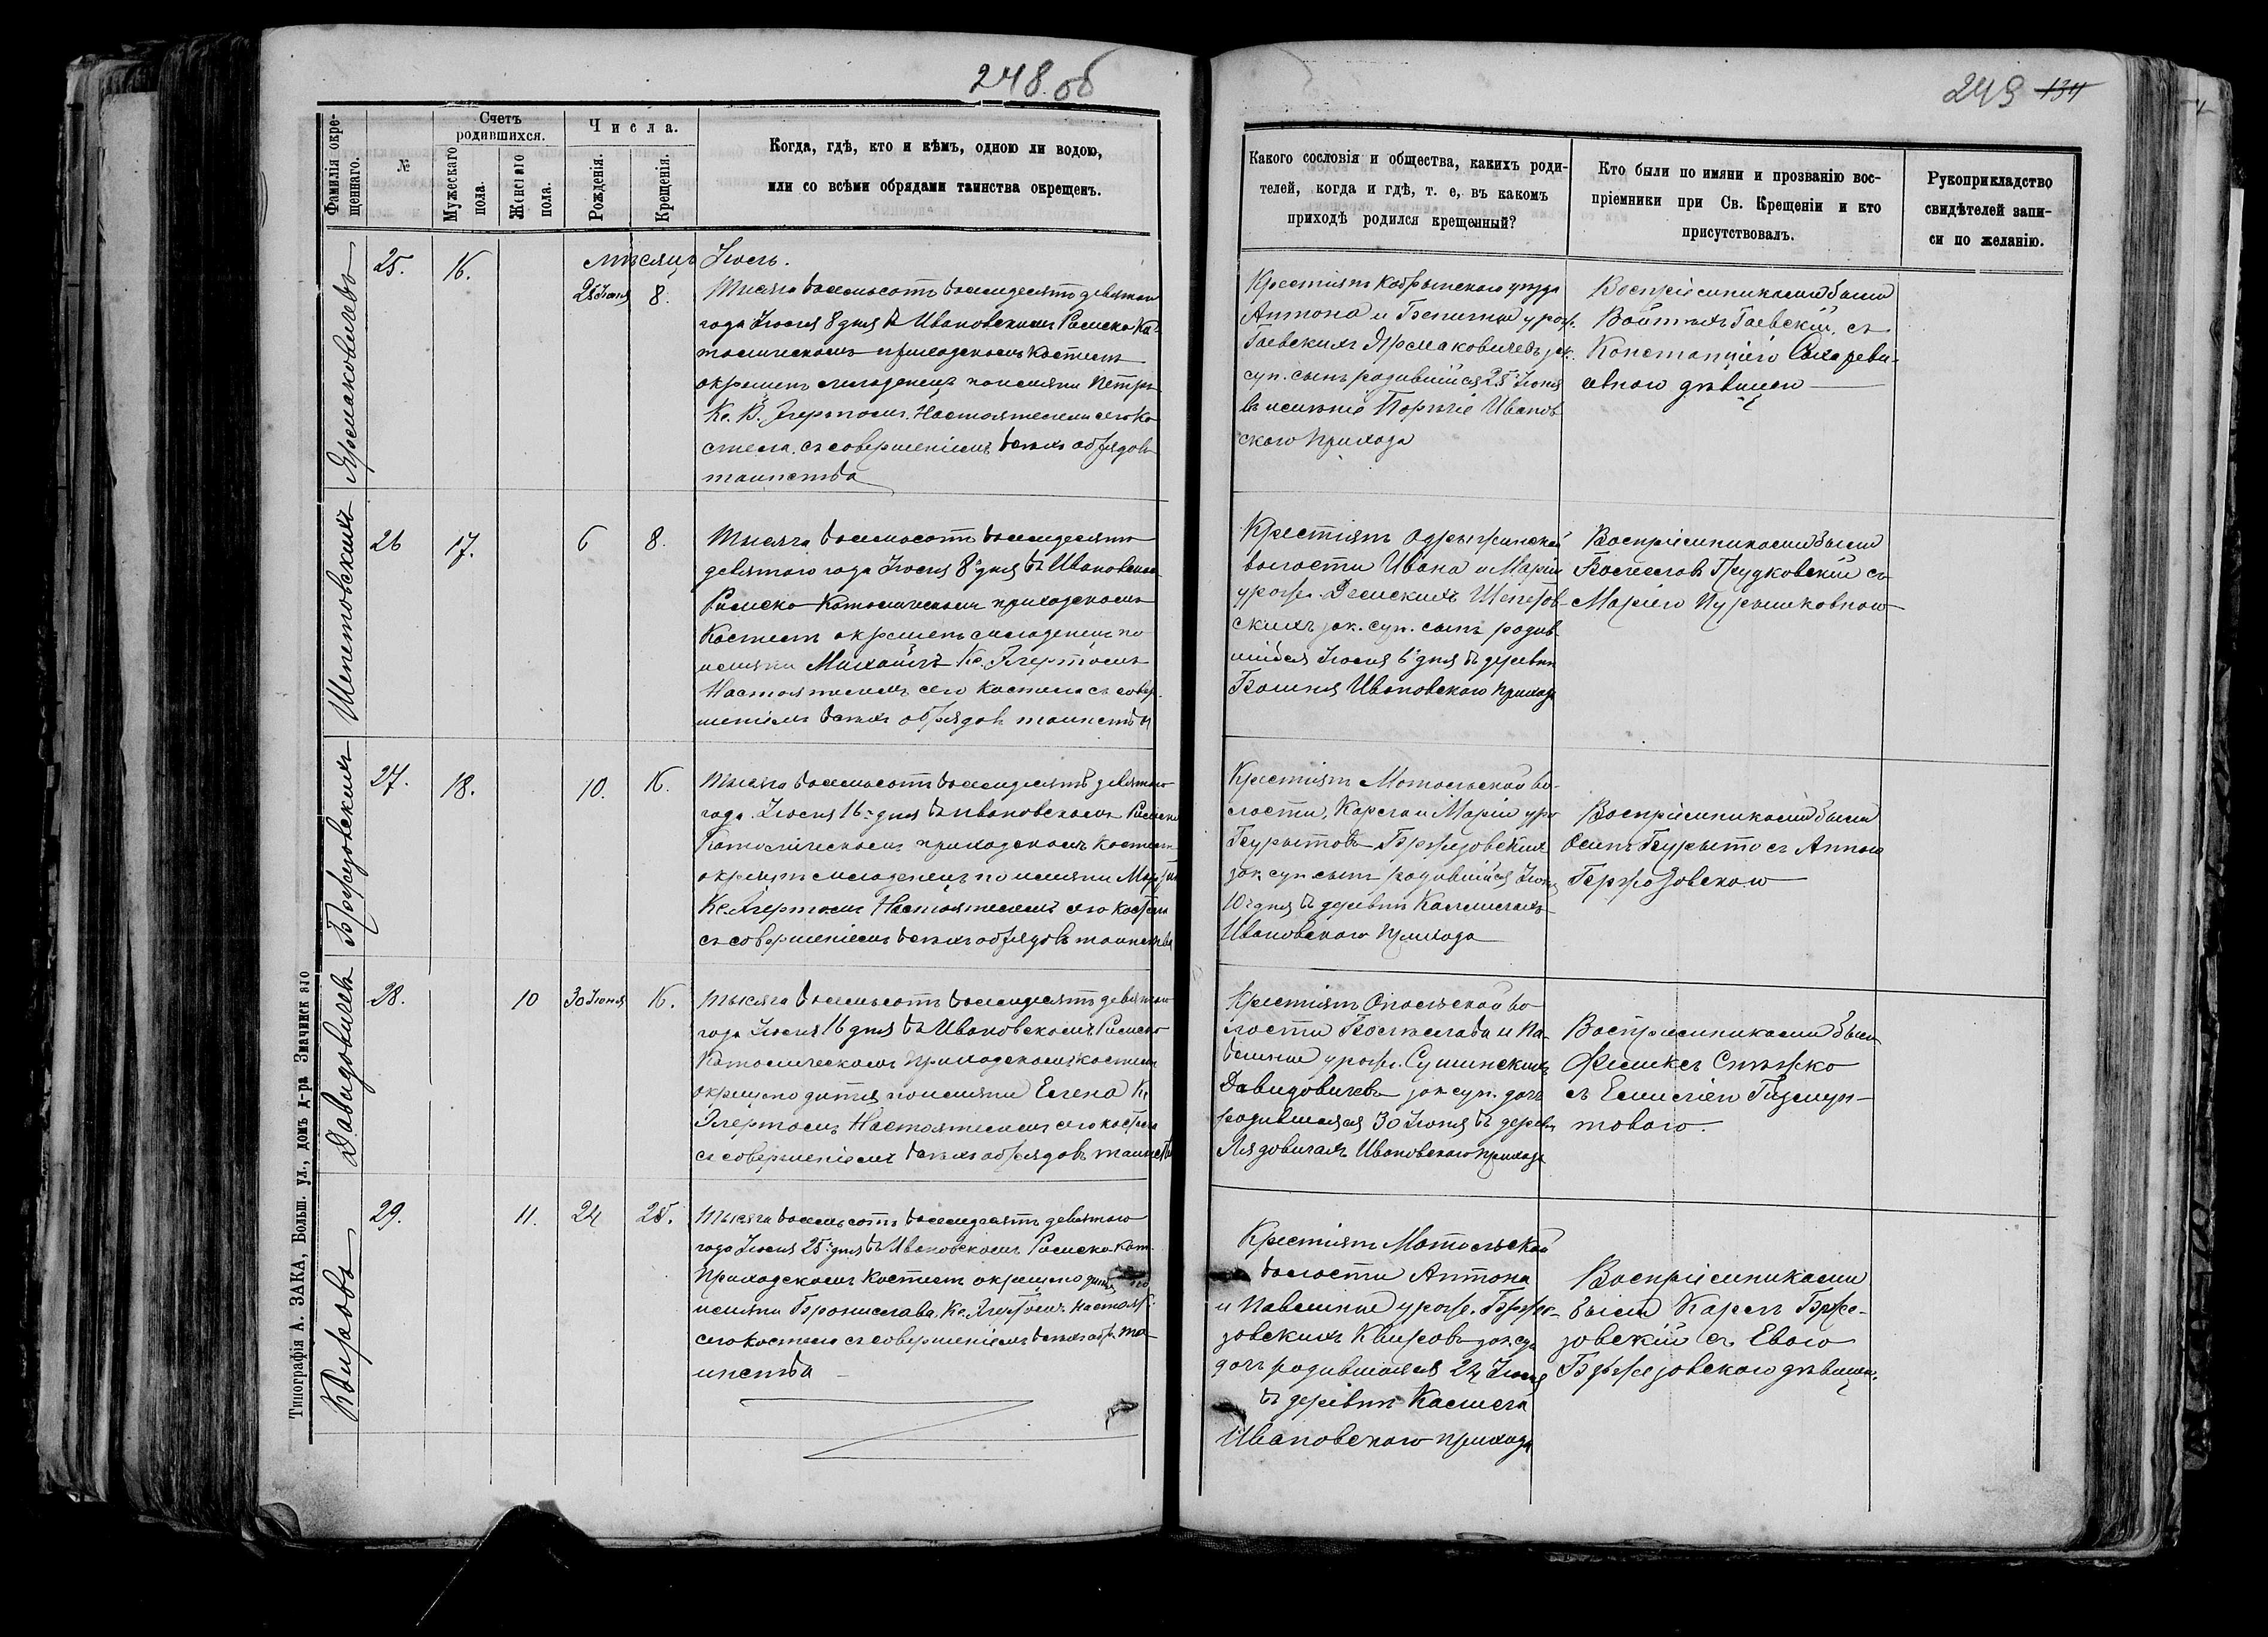 248.об
Фамилія окре-
щеннаго.
№
Счетъ
родившихся.
Мужескаго
пола.
Женскаго
пола.
Числа.
Рожденія.
Крещенія.
Когда, гдѣ, кто и кѣмъ, одною ли водою,
или со всѣми обрядами таинства окрещенъ.
Ярмаковичевъ
25.
16.
мѣсяцъ Іюль.
25 Іюня
8.
Тысяча восемьсотъ восемдесятъ девятаго
года Іюля 8 дня въ Ивановскомъ Римско Ка-
толическомъ приходскомъ костелѣ
окрещенъ младенецъ по имяни Петръ
Кс. В. Эгертомъ. Настоятелемъ сего Ко
стела, съ совершеніемъ всѣхъ обрядовъ
таинства
Шепетовскихъ
26
17.
6
8.
Тысяча восемьсотъ восемдесятъ
девятаго года Іюля 8 дня въ Ивановскомъ
Римско Католическомъ приходскомъ
Костелѣ окрещенъ младенецъ по
имяни Михаилъ Кс. Эгертомъ
Настоятелемъ сего костела съ совер-
шеніемъ всѣхъ обрядовъ таинства
Бржезовскихъ
27.
18.
10.
16.
Тысяча восемьсотъ восемдесятъ девятаго
года Іюля 16 дня въ Ивановскомъ Римско
Католическомъ приходскомъ костелѣ
окрещенъ младенецъ по имяни
Кс. Эгертомъ Настоятелемъ сего костела
съ совершеніемъ всѣхъ обрядовъ таинства
Давидовичевъ
28.
10
30 Іюня
16.
Тысяча восемьсотъ восемдесятъ девятаго
года Іюля 16 дня въ Ивановскомъ Римско
Католическомъ Приходскомъ костелѣ
окрещено дитя по имяни Елена Кс
Эгертомъ Настоятелемъ сего костела
съ совершеніемъ всѣхъ обрядовъ таинства
Квировъ
29.
11.
24
25.
Тысяча восемьсотъ восемдесятъ девятаго
года Іюля 25 дня въ Ивановскомъ Римско-Кат.
Приходскомъ Костелѣ окрещено дитя по
имяни Брониславa Кс. Эгертомъ Настоят.
сего костела съ совершеніемъ всѣхъ обр. та-
инства
Типографія А. ЗАКА, Больш. ул., домъ д-ра Значинскаго
249 134
Какого сословія и общества, какихъ роди-
телей, когда и гдѣ, т. е, въ какомъ
приходѣ родился крещенный?
Кто были по имяни и прозванію вос-
пріемники при Св. Крещеніи и кто
присутствовалъ.
Рукоприкладство
свидѣтелей запи-
си по желанію.
Крестіянъ Кобрынскаго уѣзда
Антона и урож.
Гаевскихъ Ярмаковичевъ зак.
суп. сынъ родившійся 25 Іюня
въ имѣніе Порѣчіе Иванов
скаго прихода
Воспріемниками были
Войтѣхъ Гаевскій, съ
Констанціею
дѣвицею
Крестіянъ Одрыжинской
волости Ивана и Маріи
урож. Шепетов-
скихъ зак. суп. сынъ родив
шійся Іюля 6 дня въ деревни
Ивановского прихода
Воспріемниками были
Болеславъ Грудковскій съ
Маріею
Крестіянъ Мотольской во-
лости, Карла и Маріи уро
Бржезовскихъ
зак. суп. сынъ родившійся Іюля
10 дня въ деревни
Ивановскаго прихода
Воспріемниками были
Осипъ съ Анною
Бржозовскою
Крестіянъ Опольской во
лости Болеслава и Па-
велины урож. Сушинскихъ
Давидовичевъ зак. суп. дочь
родившаяся 30 Іюня въ деревн
Лядовичахъ Ивановскаго прихода
Воспріемниками были
Феликсъ
съ Емиліею
товою.
Крестіянъ Мотольской
волости Антона
и Павелины урож. Брже-
зовскихъ Квировъ зак. су
дочь родившаяся 24 Іюля
въ деревни
Ивановского прихода
Воспріемниками
были Карлъ Брже-
зовскій съ Евою
Бржезовскою дѣвицею.